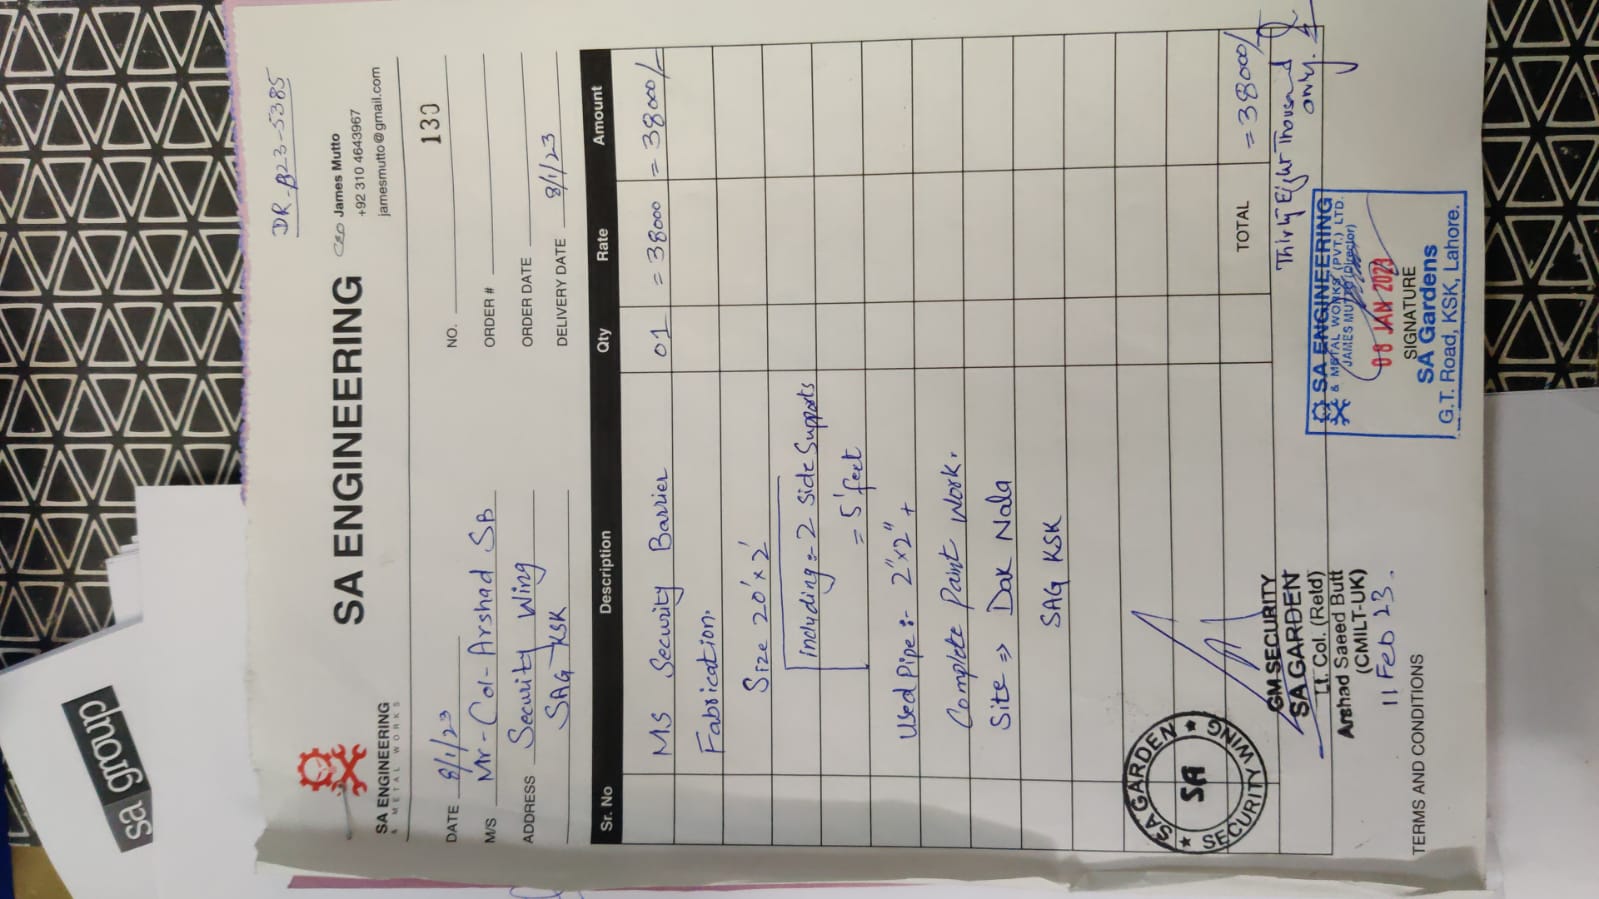 DR-B23-5385
SA ENGINEERING
& METAL WORKS
SA ENGINEERING
CEO James Mutto
+92 310 4643967
jamesmutto@gmail.com
DATE 8/1/23
NO. 130
M/S Mr-Col-Arshad SB
ORDER #
ADDRESS Security Wing
ORDER DATE
SAG KSK
DELIVERY DATE 8/1/23
Sr. No Description Qty Rate Amount
MS Security Barrier 01 = 38000 = 38000/-
Fabrication.
Size 20'x2'
including:- 2 Side Supports
= 5 feet
Used Pipe:- 2"x2" +
Complete Paint Work.
Site => Dak Nala
SAG KSK
TOTAL = 38000/-
Thirty Eight Thousand
only.
SA GARDEN
SA
SECURITY WING
GM SECURITY
SA GARDEN
Lt. Col. (Retd)
Arshad Saeed Butt
(CMILT-UK)
11 Feb 23.
SA ENGINEERING
& METAL WORKS (PVT.) LTD.
JAMES MUTTO (Director)
08 JAN 2023
SIGNATURE
SA Gardens
G.T. Road, KSK, Lahore.
TERMS AND CONDITIONS
sa group